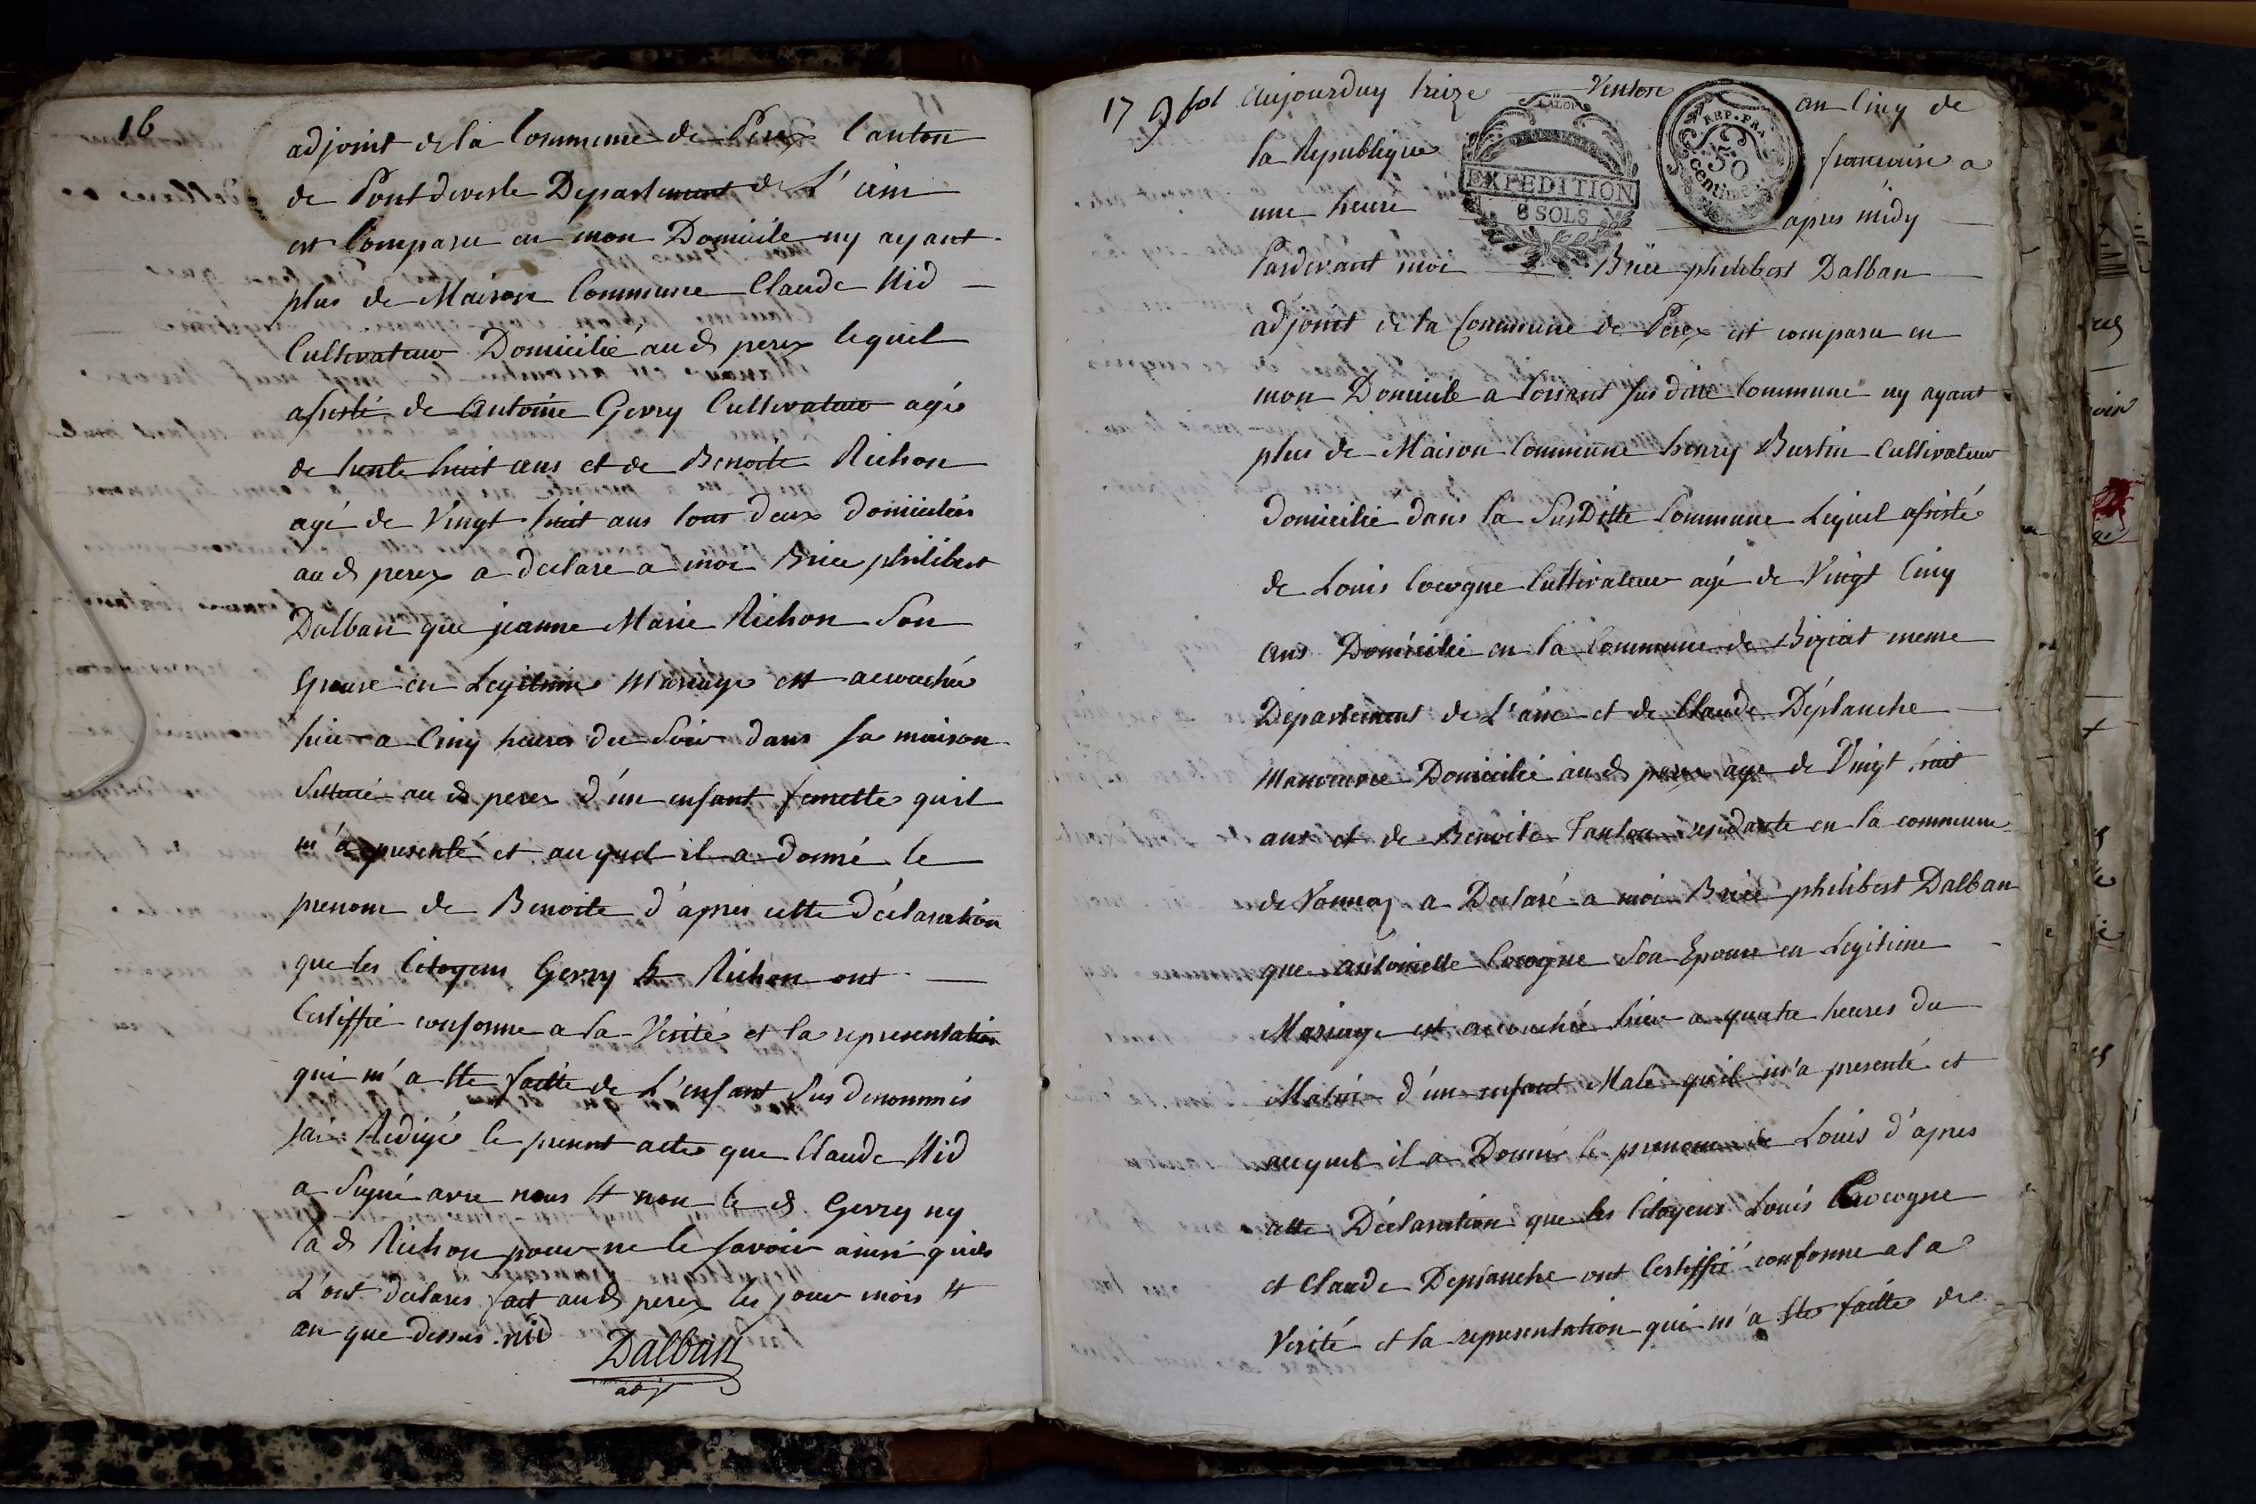 16
adjoint de la Commune de Perex Canton
de Pontdevesle Departement de L'ain
est Comparu en mon Domicile ny ayant
plus de Maison Commune Claude Nid
Cultivateur Domicilié aud perex lequel
assisté de Antoine Gerry Cultivateur agé
de trente huit ans et de Benoite Richon
agé de Vingt huit ans tous deux domiciliés
aud perex a declaré a moi Brice philibert
Dalban que jeanne Marie Richon Son
Epouse en Legitime Mariage est acouchée
hier a Cinq heures du Soir dans sa maison
Scituée au d perex d'un enfant femelle quil
m'a presenté et auquel il a donné le
prenom de Benoite d'après cette déclaration
que les Citoyens Gerry et Richon ont
Certiffié conforme a la Verité et la representation
qui m'a ete faitte de L'enfant Sus denommés
jai Redigé le present acte que Claude Nid
a Signé avec nous et non le d Gerry ny
la d Richon pour ne le savoir ainsi quils
L'ont declarés fait aud perex les jour mois et
an que dessus nid
Dalban
adjt
17 Aujourduy treize Ventose an Cinq de
EXPEDITION
8 SOLS
REP. FRA
50
Centimes
la Republique francaise a
une heure apres midy
Pardevant moi Brice philibert Dalban
adjoint de la Commune de Perex est comparu en
mon Domicile a Sus dite Commune ny ayant
plus de Maison Commune henry Burtin Cultivateur
domicilié dans la SusDitte Commune Lequel assisté
de Louis Cocogne Cultivateur agé de Vingt Cinq
ans Domicilié en la Commune de Biziat meme
Departement de L'ain et de Claude Déplanche
Manoeuvre Domicilié aud perex age de Vingt huit
ans et de Benoite Tanton residante en la commune
de Vonnas a Declaré a moi Brice philibert Dalban
que antoinette Cocogne Son Epouse en Legitime
Mariage est acouchée hier a quatre heures du
Matin d'un enfant Male quil m'a presenté et
auquel il a Donné le prenom de Louis d'apres
cette Déclaration que les Citoyens Louis Cocogne
et Claude Deplanche ont Certiffié conforme a la
Verité et la representation qui m'a ete faitte de